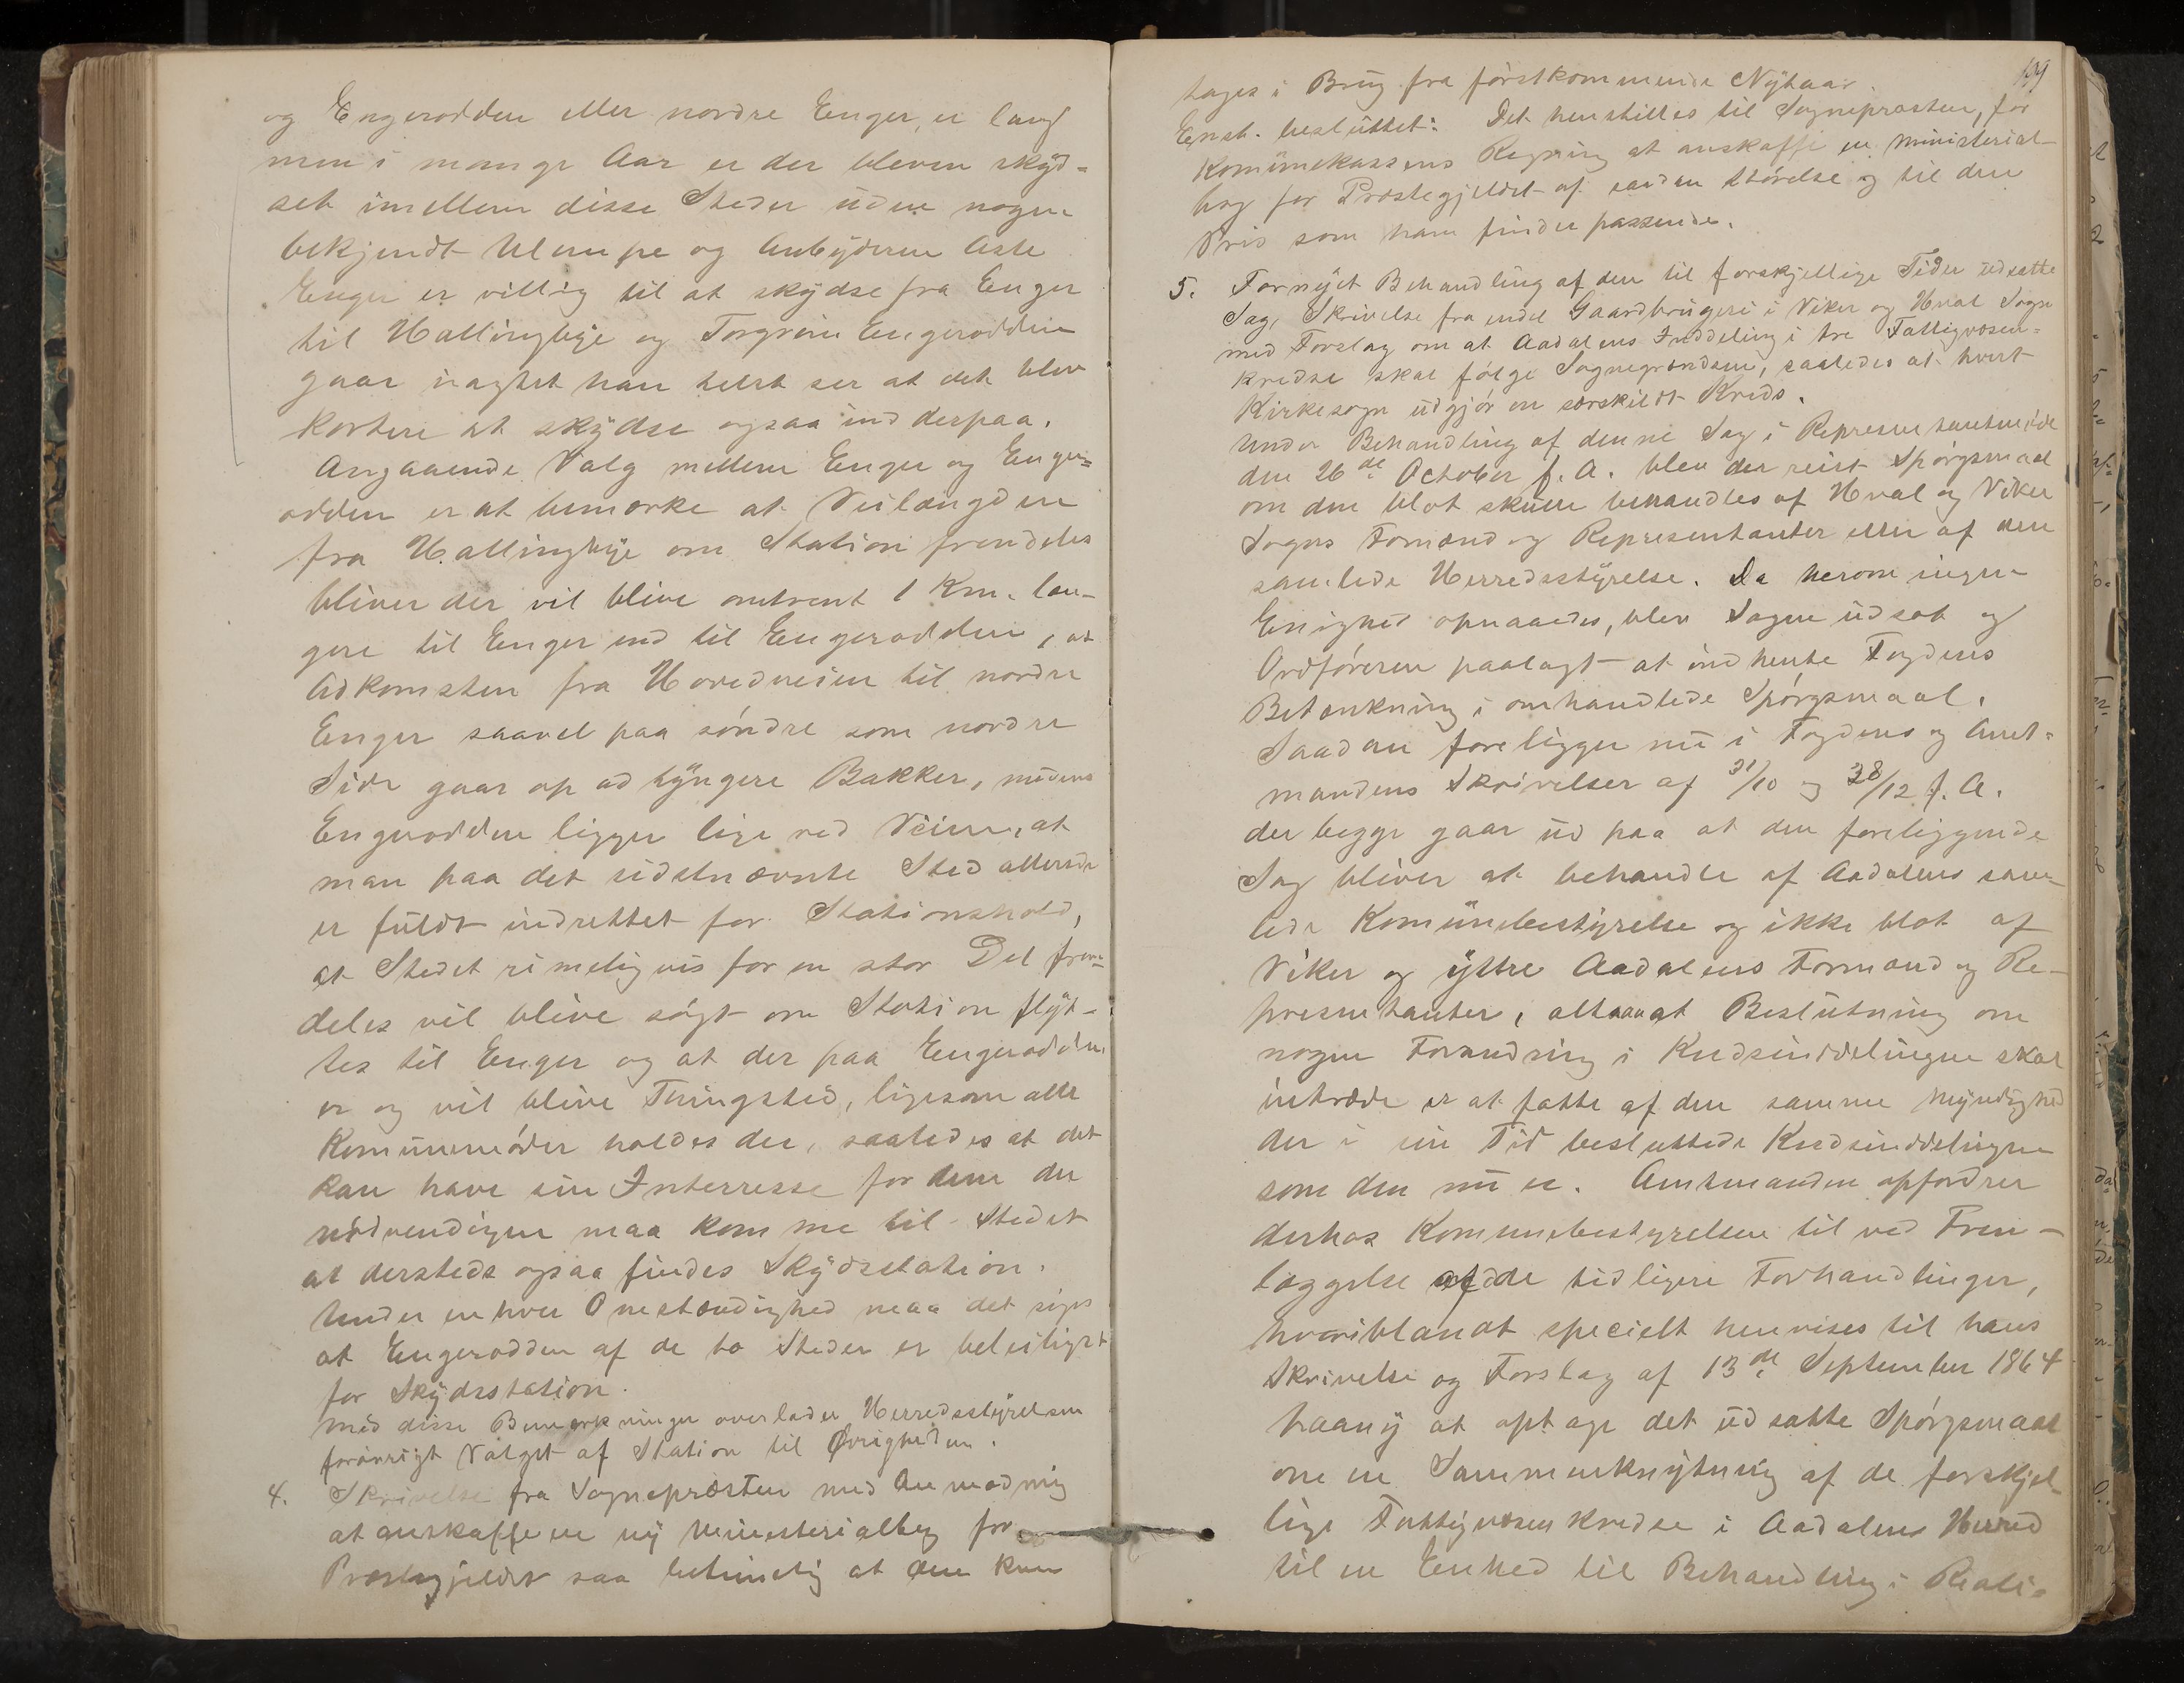 og Engerodden eller nordre Enger, er lang
men i mange Aar er der bleven skyd-
set imellem disse Steder uden nogen
bekjendt Ulempe og Anbyderen Aste
Enger er villig til at skydse fra Enger
til Hallingbye og Torgrim Engerodden
gaar uagtet han helst ser at det blev
kortere at skydse ogsaa ind derpaa.
Angaaende Valg mellem Enger og Enger=
odden er at bemærke at Veilængden
fra Hallingbye om Station fremdeles
bliver der vil blive omtrent 1 Km. læn-
gere til Enger end til Engerodden, at
Adkomsten fra Hovedveien til nordre
Enger saavel paa søndre som nordre
Side gaar op ad tyngere Bakker, medens
Engerodden ligger lige ved Veien, at
man paa det sidstnævnte Sted allerede
er fuldt indrettet for Stationshold,
at Stedet rimeligvis for en stor Del frem=
deles vil blive søgt om Station flyt-
tes til Enger og at der paa Engerodden
er og vil blive Thingsted, ligesom alle
Kommunemøder holdes der, saaledes at det
kan have sin Interresse for dem der
nødvendigen maa komme til Stedet
at dersteds ogsaa findes Skydsstation.
Under enhver Omstændighed maa det siges
at Engerodden af de to Steder er beleiligst
for Skydsstation.
Med disse Bemærkninger overlader Herredsstyrelsen
forøvrigt Valget af Station til Øvrigheden.
4. Skrivelse fra Sognepræsten med Anmodning
at anskaffe en ny Ministerialbog for
Præstegjeldet saa betimelig at den kan
199
tages i Brug fra førstkommende Nytaar.
Enst. besluttet: Det henstilles til Sognepræsten, for
Kommunekassens Regning at anskaffe en Ministerial-
bog for Præstegjeldet af saadan Størelse og til den
Pris som han finder passende.
5. Fornyet Behandling af den til forskjellige Tider udsatte
Sag, Skrivelse fra endel Gaardbrugere i Viker og Hval Sogn
med Forslag om at Aadalens Inddeling i tre Fattigvæsen=
kredse skal følge Sognegrændsen, saaledes at hvert
Kirkesogn udgjør en særskildt Kreds.
Under Behandling af denne Sag i Representantmøde
den 26de October f. A. blev der reist Spørgsmaal
om den blot skulle behandles af Hval og Viker
Sogns Formænd og Representanter eller af den
samlede Herredsstyrelse. Da herom ingen
Enighed opnaaedes, blev Sagen udsat og
Ordføreren paalagt at indhente Fogdens
Betænkning i omhandlede Spørgsmaal.
Saadan foreligger nu i Fogdens og Amt=
mandens Skrivelser af 31/10 og 28/12 f. A.
der begge gaar ud paa at den foreliggende
Sag bliver at behandle af Aadalens sam-
lede Kommunebestyrelse og ikke blot af
Viker og Yttre Aadalens Formænd og Re-
presentanter, altsaa at Beslutning om
nogen Forandring i Kredsinddelingen skal
intræde er at fatte af den samme Myndighed
der i sin Tid besluttede Kredsinddelingen
som den nu er. Amtmanden opfordrer
derhos Kommunebestyrelsen til ved Frem-
læggelse af de tidligere Forhandlinger,
hvoriblandt specielt henvises til hans
Skrivelse og Forslag af 13de September 1864
paany at optage det udsatte Spørgsmaal
om en Sammenknytning af de forskjel-
lige Fattigvæsenkredse i Aadalens Herred
til en Enhed til Behandling i Reali=